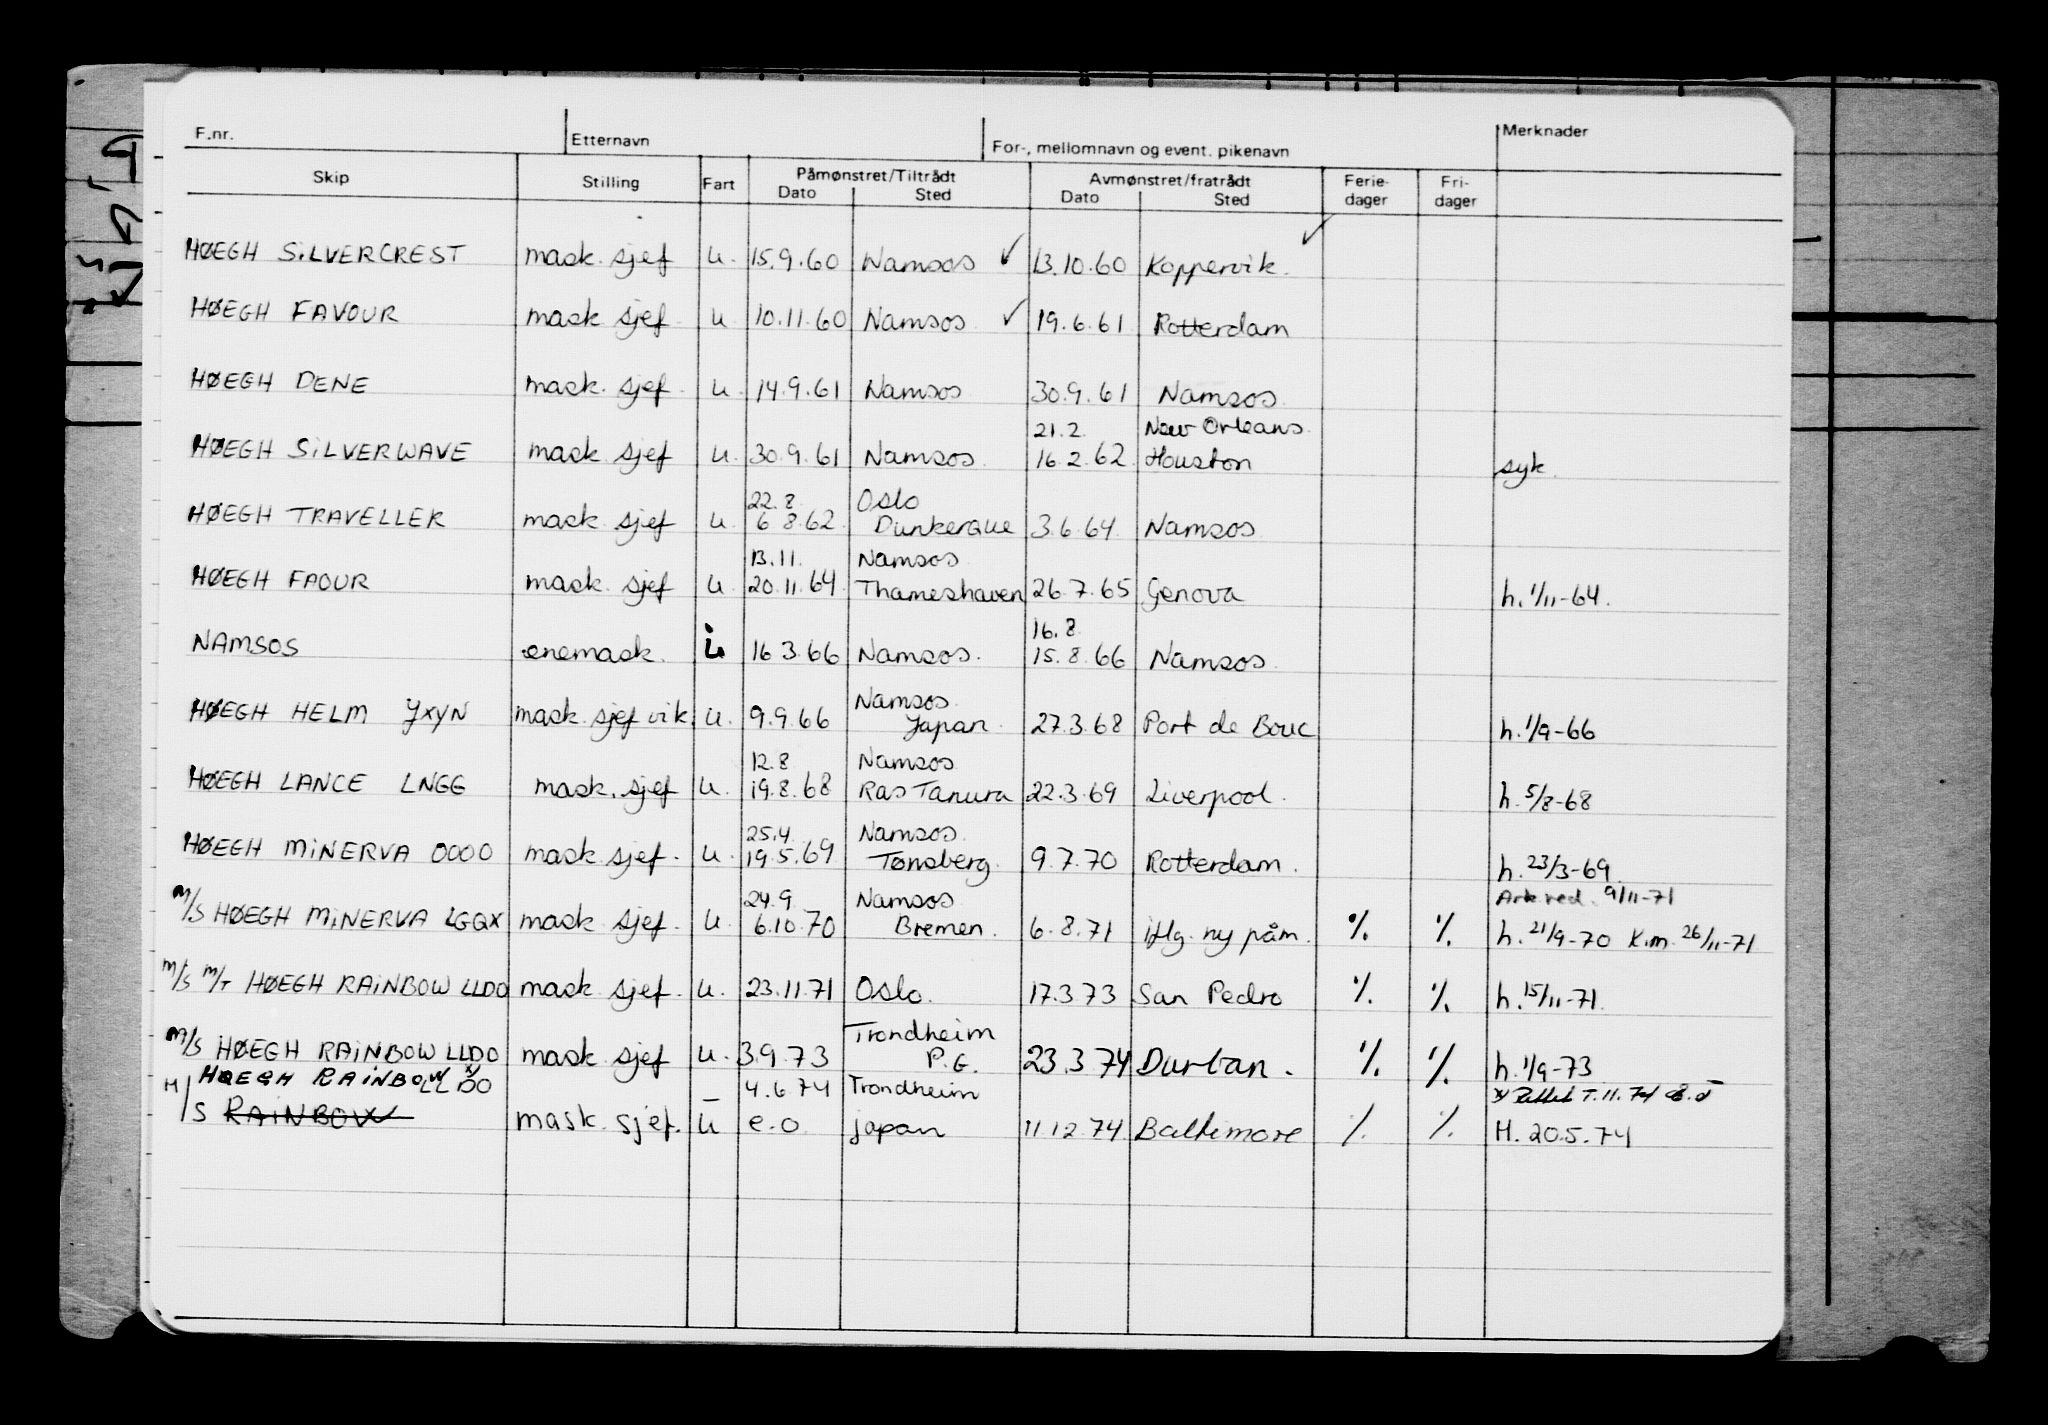 F.nr. Etternavn For-, mellomnavn og event. pikenavn Merknader
Skip Stilling Fart Påmønstret/Tiltrådt Avmønstret/fratrådt Ferie- Fri-
Dato Sted Dato Sted dager dager
HØEGH SILVERCREST mask. sjef u. 15.9.60 Namsos ✓ 13.10.60 Koppervik. ✓
HØEGH FAVOUR mask sjef u. 10.11.60 Namsos ✓ 19.6.61 Rotterdam
HØEGH DENE mask. sjef u. 14.9.61 Namsos 30.9.61 Namsos
21.2. New Orleans.
HØEGH SILVERWAVE mask sjef u. 30.9.61 Namsos. 16.2.62 Houston syk.
22.8. Oslo
HØEGH TRAVELLER mask sjef u. 6.8.62. Dunkerque 3.6.64. Namsos
13.11. Namsos.
HØEGH FAOUR mask. sjef u. 20.11.64 Thameshaven 26.7.65 Genova h. 1/11-64.
16.8.
NAMSOS enemask. i 16.3.66 Namsos. 15.8.66 Namsos.
Namsos.
HØEGH HELM JXYN mask. sjef vik. u. 9.9.66 Japan. 27.3.68 Port de Bouc h. 1/9-66
12.8 Namsos
HØEGH LANCE LNGG mask. sjef u. 19.8.68 Ras Tanura 22.3.69 Liverpool. h. 5/8-68
25.4. Namsos.
HØEGH MINERVA OOOO mask sjef. u. 19.5.69 Tønsberg. 9.7.70 Rotterdam. h. 23/3-69.
24.9 Namsos Ark.red. 9/11-71
M/S HØEGH MINERVA LGQX mask. sjef. u. 6.10.70 Bremen. 6.8.71 iflg. ny påm. % % h. 21/9-70 K.m. 26/11-71
M/S M/T HØEGH RAINBOW LLDO mask sjef. u. 23.11.71 Oslo. 17.3.73 San Pedro % % h. 15/11-71.
Trondheim
M/S HØEGH RAINBOW LLDO mask. sjef u. 3.9.73 P.G. 23.3.74 Durban. % % h. 1/9-73
HØEGH RAINBOW LLDO x) 4.6.74 Trondheim x) Rettet T.11.74
M/S RAINBOW mask. sjef. u e.o. japan 11.12.74 Baltimore % % H. 20.5.74